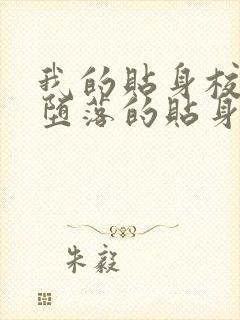 我的贴身校
堕落的贴身
朱毅